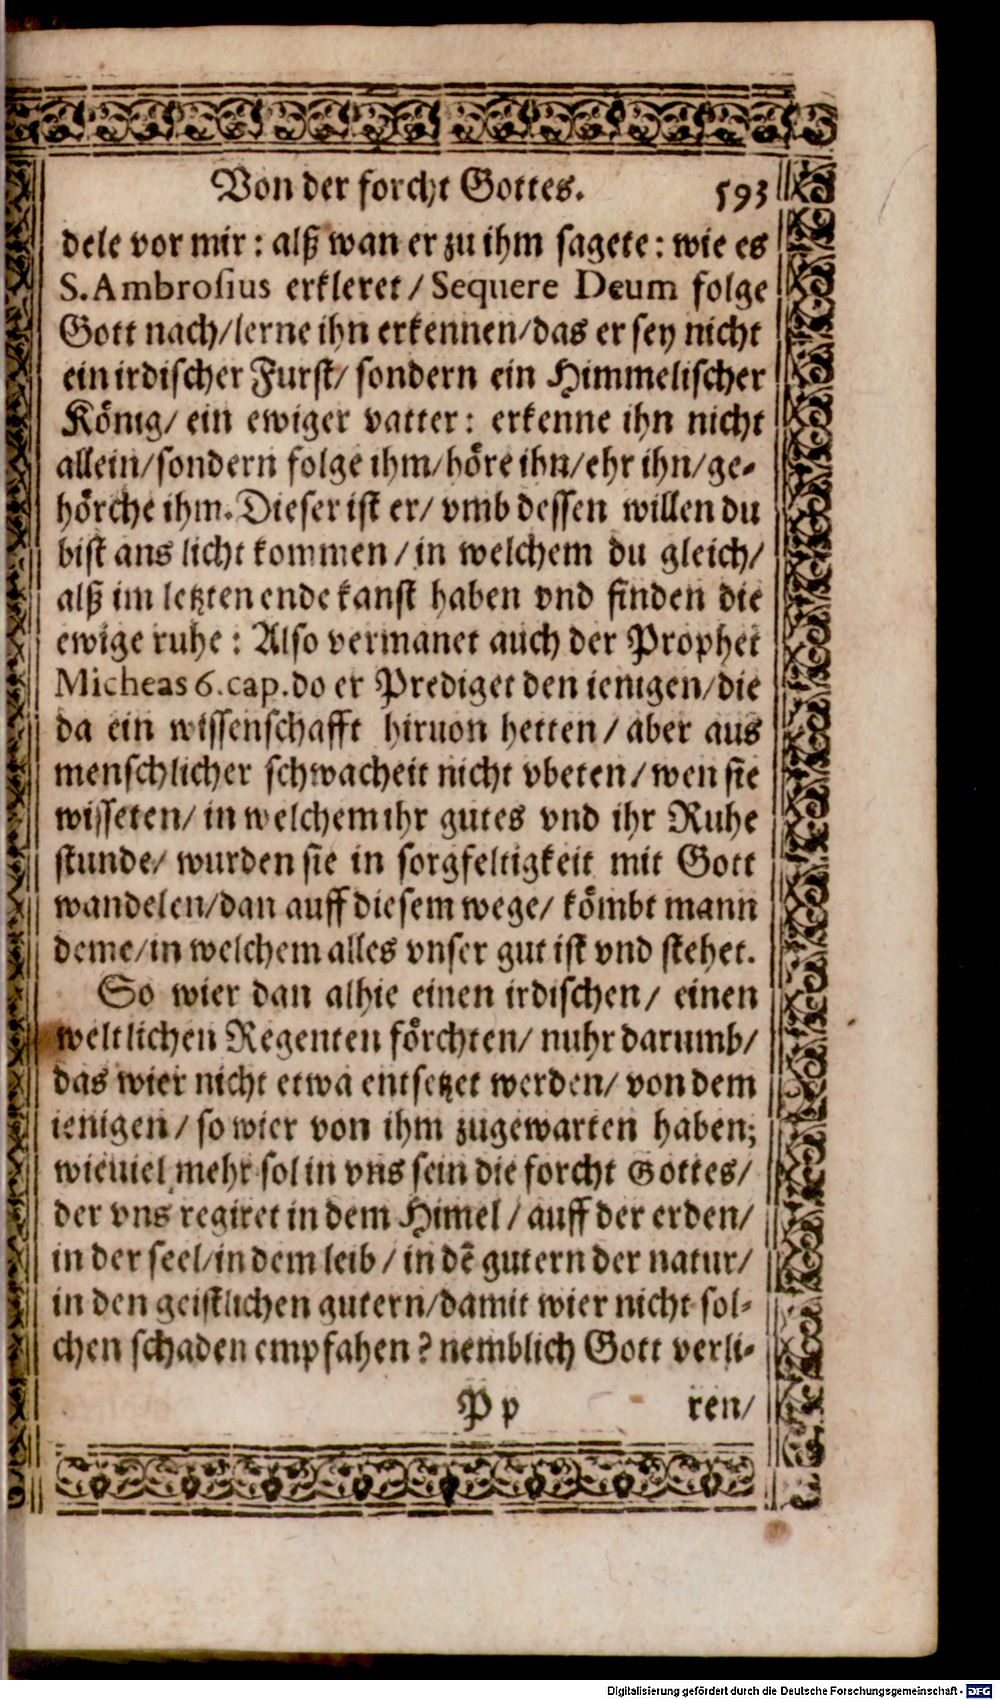 Von der forcht Gottes. 593
dele vor mir: alß wan er zu ihm sagete: wie es
S. Ambrosius erkleret/ Sequere Deum folge
Gott nach/ lerne ihn erkennen/ das er sey nicht
ein irdischer Furst/ sondern ein Himmelischer
König/ ein ewiger vatter: erkenne ihn nicht
allein/ sondern folge ihm/ höre ihn/ ehr ihn/ ge-
hörche ihm. Dieser ist er/ vmb dessen willen du
bist ans licht kommen/ in welchem du gleich/
alß im letzten ende kanst haben vnd finden die
ewige ruhe: Also vermanet auch der Prophet
Micheas 6. cap. do er Prediget den ienigen/ die
da ein wissenschafft hiruon hetten/ aber aus
menschlicher schwacheit nicht vbeten/ wen sie
wisseten/ in welchem ihr gutes vnd ihr Ruhe
stunde/ wurden sie in sorgfeltigkeit mit Gott
wandelen/ dan auff diesem wege/ kömbt mann
deme/ in welchem alles vnser gut ist vnd stehet.
So wier dan alhie einen irdischen/ einen
weltlichen Regenten förchten/ nuhr darumb/
das wier nicht etwa entsetzet werden/ von dem
ienigen/ so wier von ihm zugewarten haben;
wieuiel mehr sol in vns sein die forcht Gottes/
der vns regiret in dem Himel/ auff der erden/
in der seel/ in dem leib/ in dē gutern der natur/
in den geistlichen gutern/ damit wier nicht sol-
chen schaden empfahen? nemblich Gott verli-
P p ren/
Digitalisierung gefördert durch die Deutsche Forschungsgemeinschaft - DFG